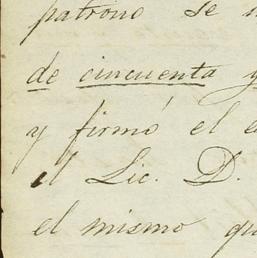 patrono se
de cincuenta y
y firmó el
el Lic. D.
el mismo qu